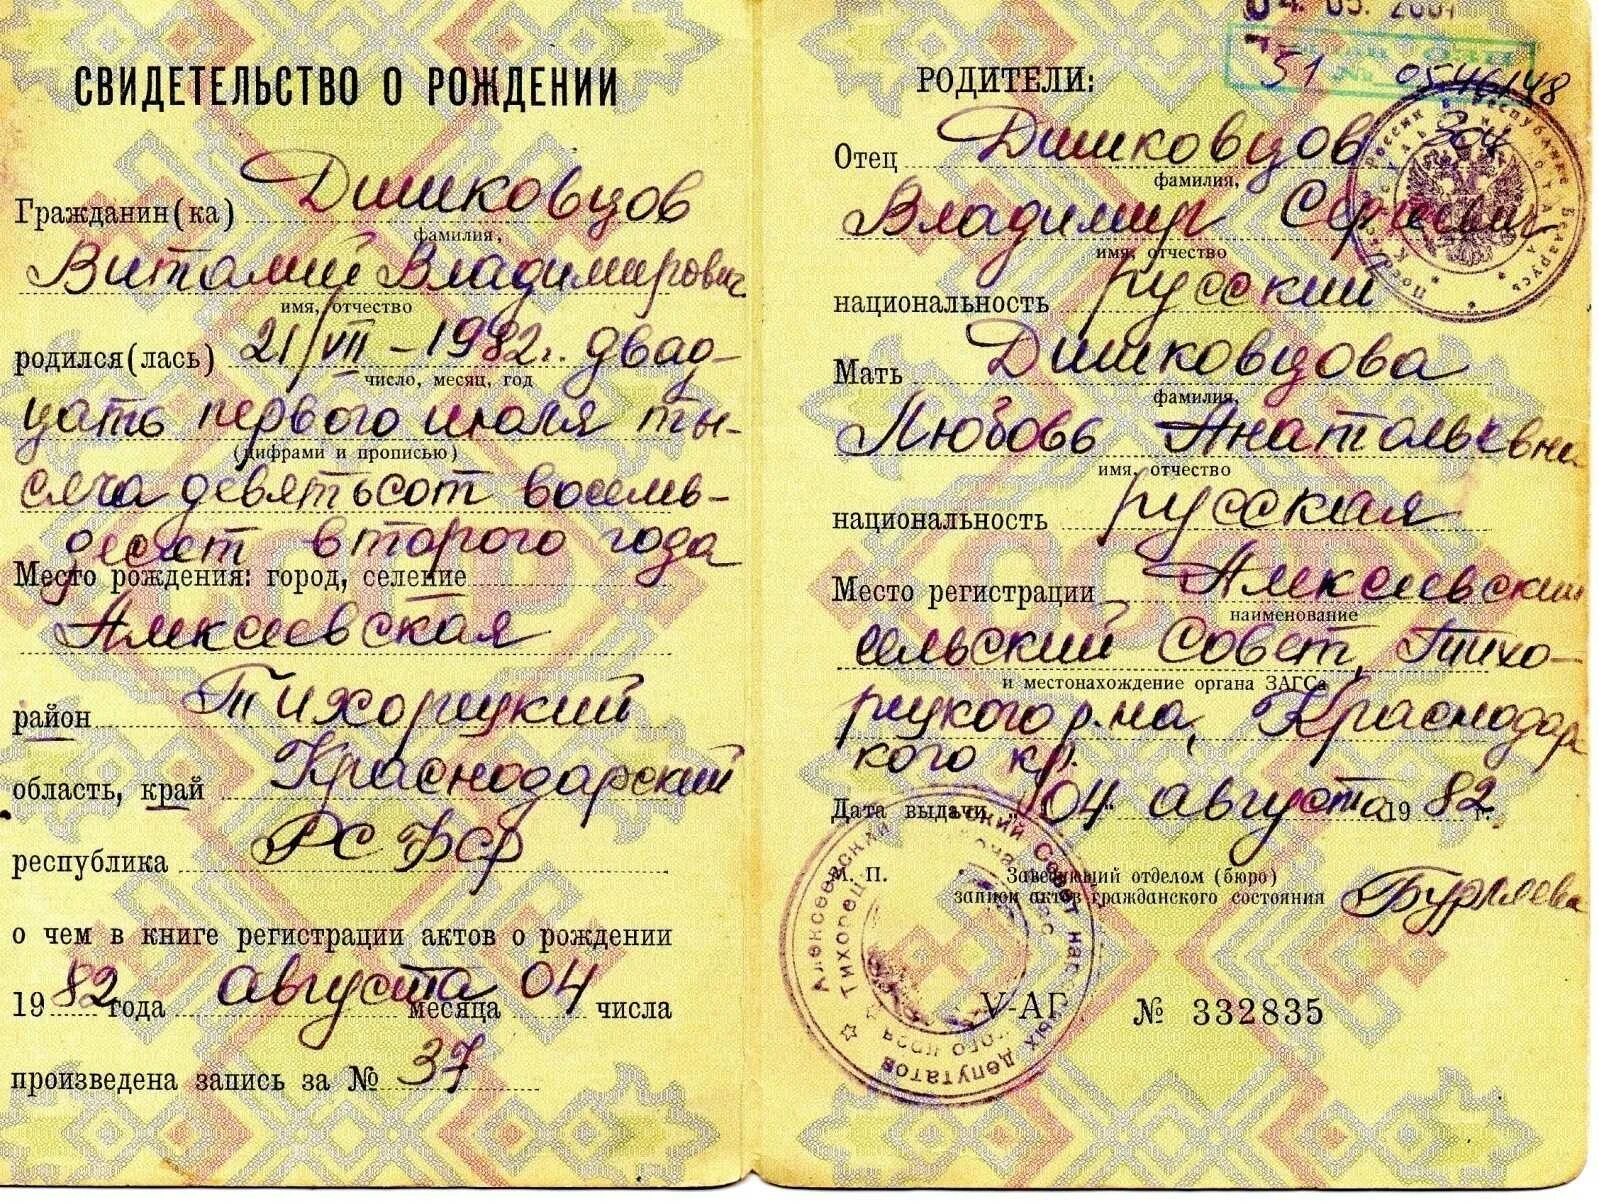 СВИДЕТЕЛЬСТВО О РОЖДЕНИИ
Гражданин(ка) Дишковцов
фамилия,
Виталий Владимирович
имя, отчество
родился(лась) 21/VII – 1982 г. двад-
число, месяц, год
цать первого июля ты-
(цифрами и прописью)
сяча девятьсот восемь-
десят второго года
Место рождения: город, селение
Алексеевская
район Тихорецкий
область, край Краснодарский
республика РСФСР
о чем в книге регистрации актов о рождении
1982 года августа месяца 04 числа
произведена запись за № 37
04. 05. 2001
РОДИТЕЛИ:
51 0546148
Отец Дишковцов
фамилия,
Владимир Сергеевич
имя, отчество
национальность русский
Мать Дишковцова
фамилия,
Любовь Анатольевна
имя, отчество
национальность русская
Место регистрации Алексеевский
наименование
сельский Совет, Тихо-
и местонахождение органа ЗАГСа
рецкого р-на, Краснодар
кого кр.
Дата выдачи „04" августа 1982 г.
М. П.
Заведующий отделом (бюро)
записи актов гражданского состояния Бурляева
V-АГ № 332835